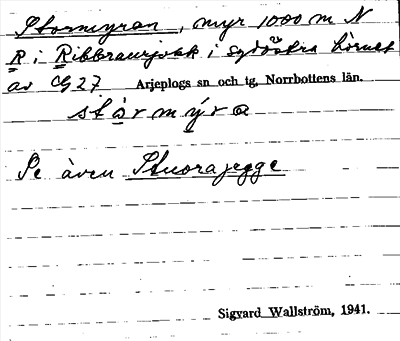 Stormyran, myr 1000 m N
R i Ribbraurjokk i sydöstra hörnet
av CG 27 Arjeplogs sn och tg, Norrbottens län.
stårmýra
Se även Stuorajegge
Sigvard Wallström, 1941.